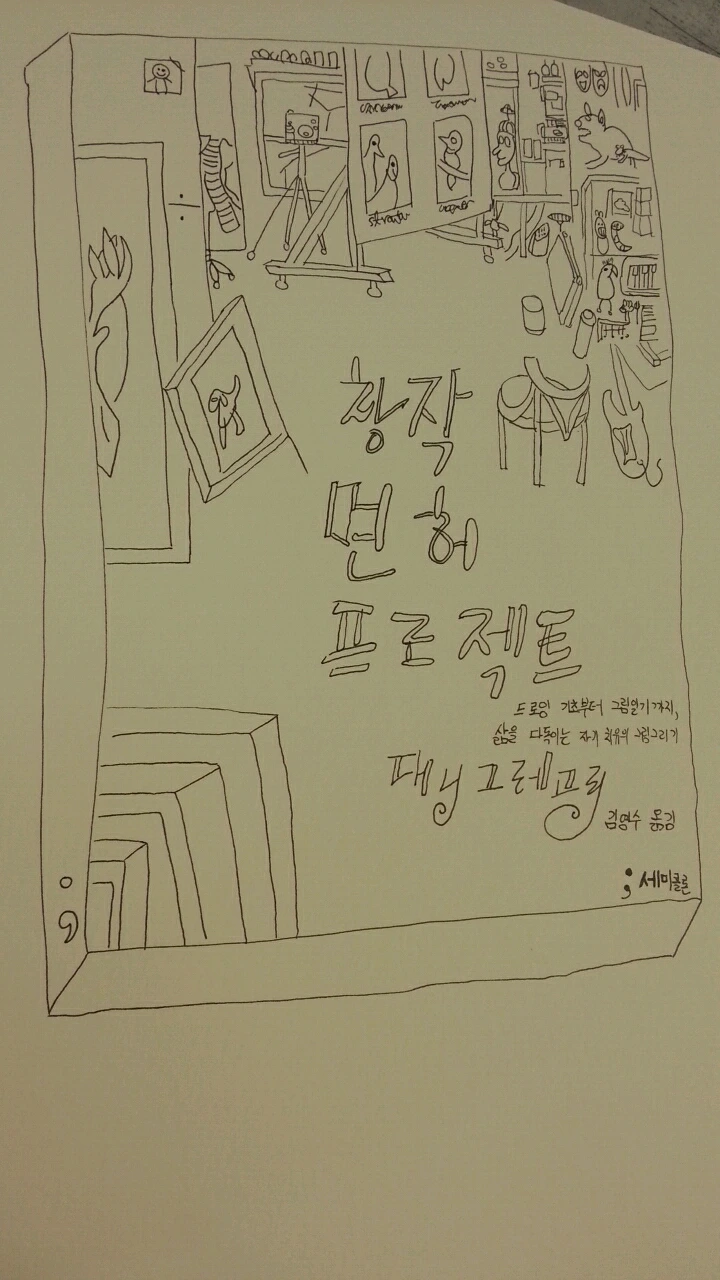 창작
면허
프로젝트
드로잉 기초부터 그림일기까지,
삶을 다독이는 자기 치유의 그림그리기
대니 그레고리
김영수 옮김
; 세미콜론
;